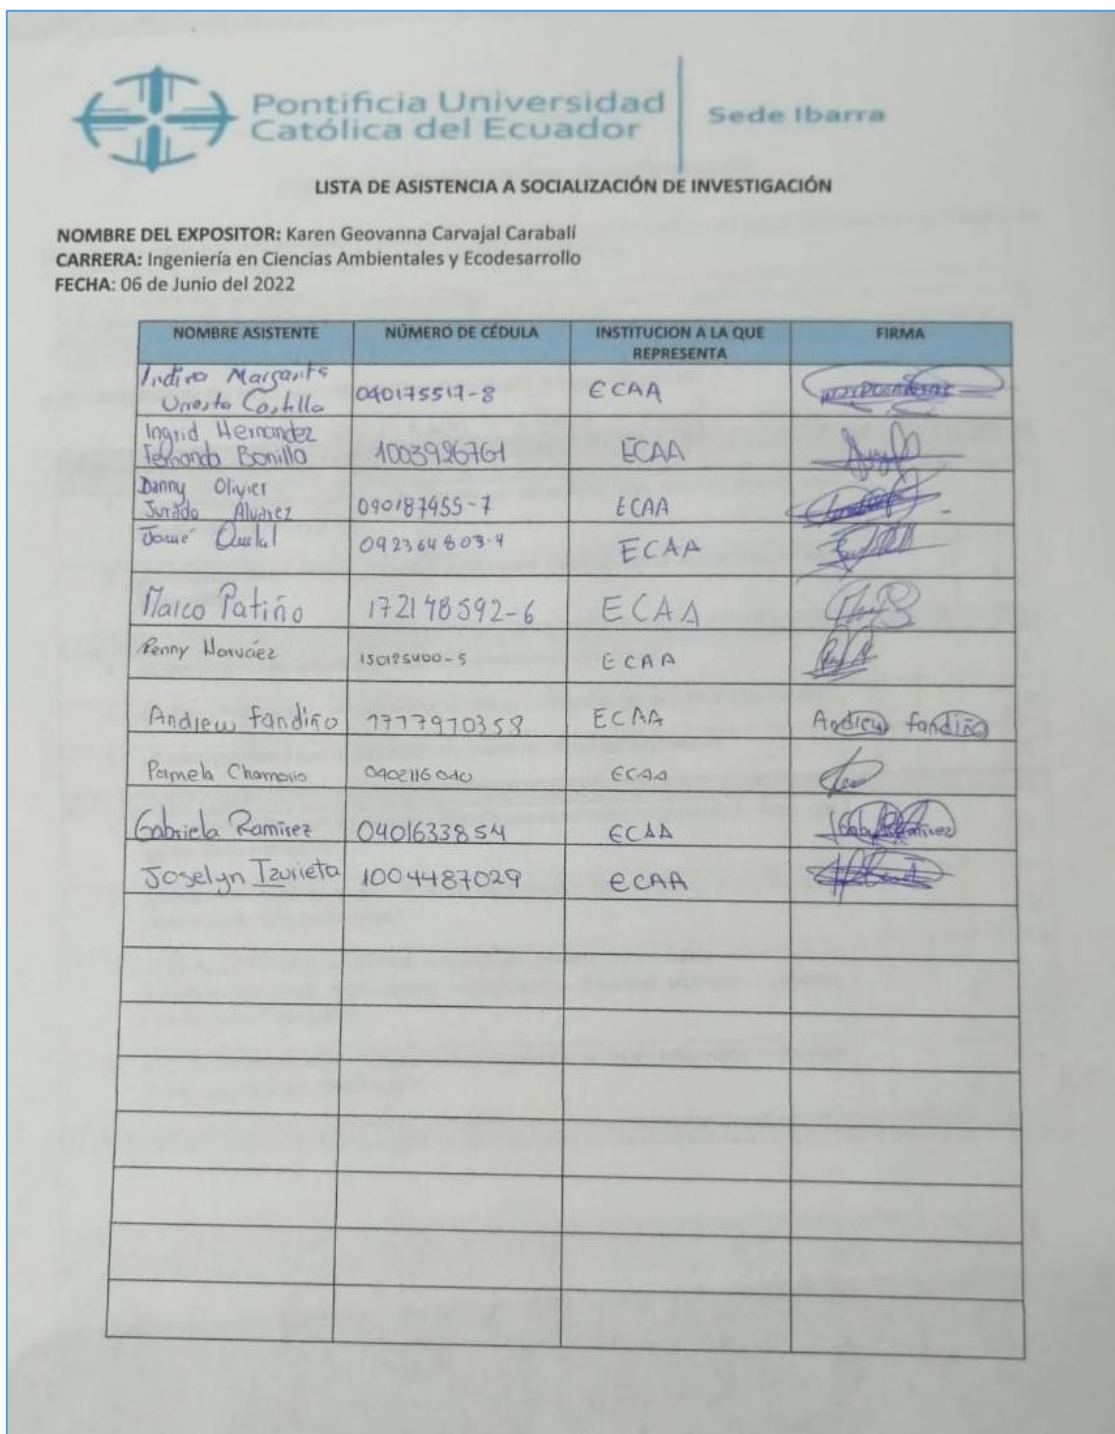 Pontificia Universidad
Católica del Ecuador
Sede Ibarra
LISTA DE ASISTENCIA A SOCIALIZACIÓN DE INVESTIGACIÓN
NOMBRE DEL EXPOSITOR: Karen Geovanna Carvajal Carabalí
CARRERA: Ingeniería en Ciencias Ambientales y Ecodesarrollo
FECHA: 06 de Junio del 2022
NOMBRE ASISTENTE NÚMERO DE CÉDULA INSTITUCION A LA QUE REPRESENTA FIRMA
Margarita Castillo 040175517-8 ECAA
Ingrid Hernandez
Fernanda Bonilla 1003926761 ECAA
Danny Olivier
Jurado Alvarez 090187455-7 ECAA
Josué 092364803-4 ECAA
Marco Patiño 172148592-6 ECAA
Penny Narváez ECAA
Andrew Fandiño 1717970358 ECAA Andrew Fandiño
Pamela Chamorro ECAA
Gabriela Ramírez 0401633854 ECAA
Joselyn Izurieta 1004487029 ECAA